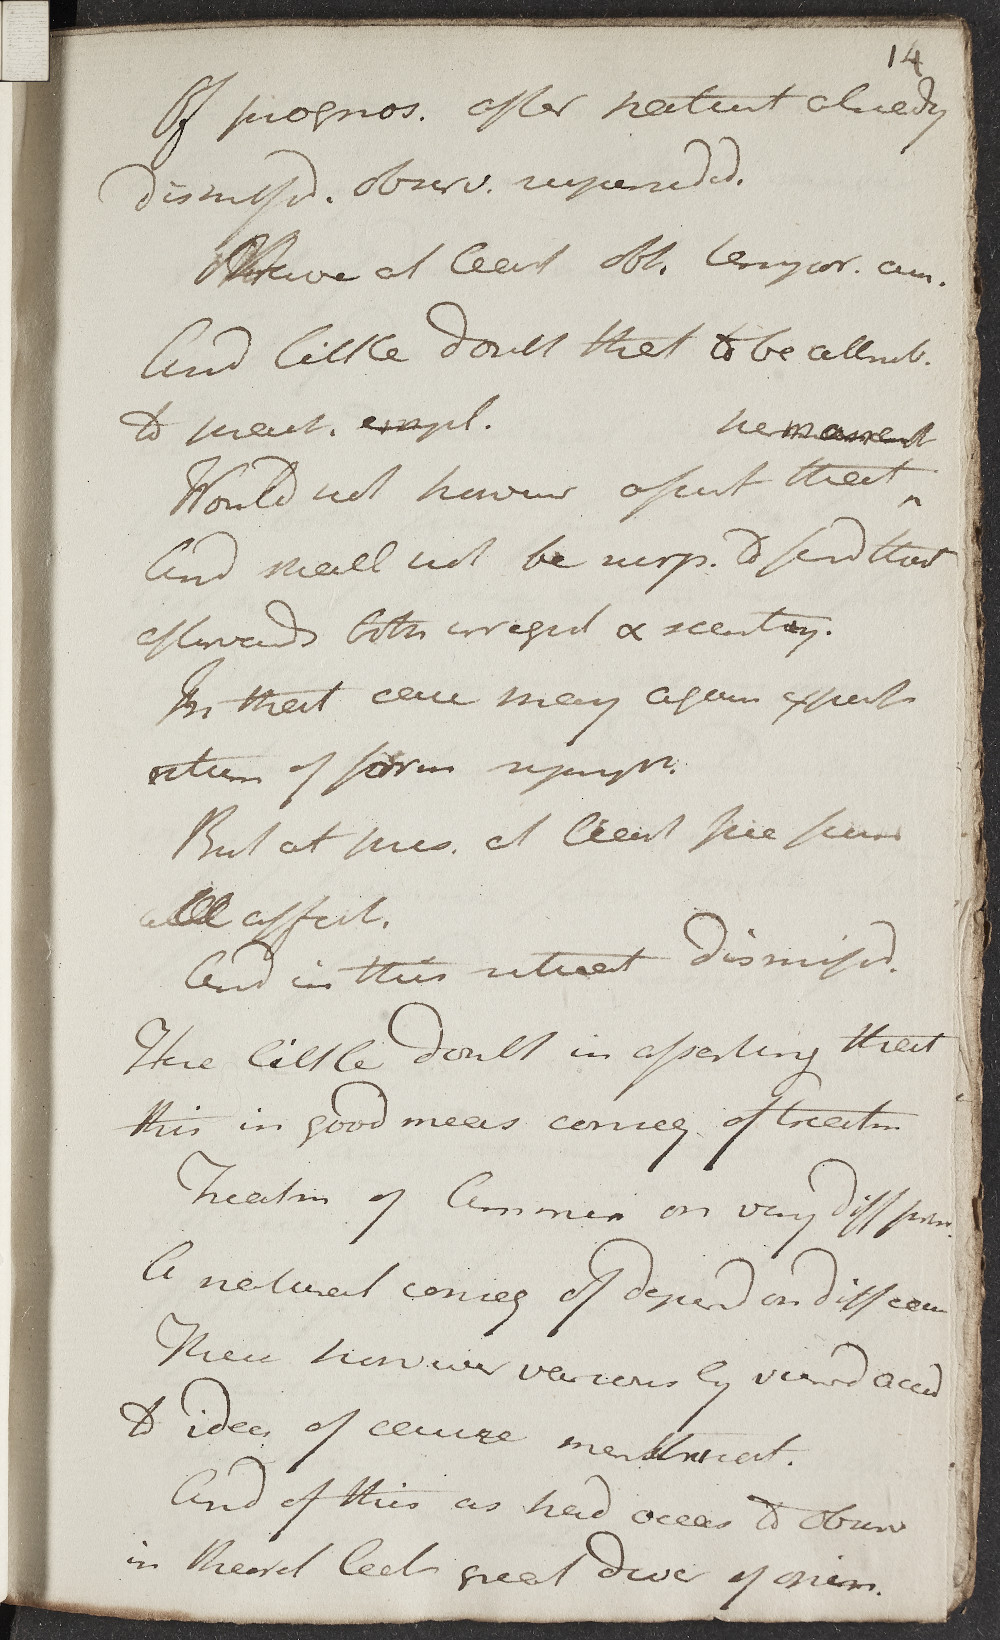 14
Of prognos. after patient already
dismissd. observ. superseded.
Have at least obt. tempor. cure.
And little doubt that to be attrib.
to pract. empl.
permanent
Would not however assert that
And shall not be surp. to find that
afterwards both irregul & scanty.
In that case may again expect
return of form sympt.
But at pres. at least free from
all affect.
And in this retreat dismissd.
Have little doubt in asserting that
this in good meas conseq. of treatm
Treatm of Amenorr on very diff prin.
A natural conseq of depend on diff cau
These however variously viewd accd
to idea of cause menstruat.
And of this as had occas to observ
in theoret lect great diver of opin.